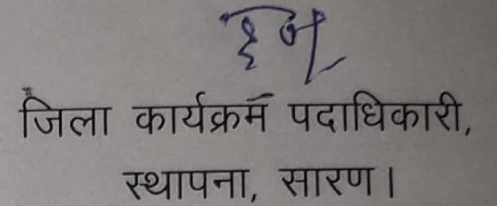 जिला कार्यक्रम पदाधिकारी,
स्थापना, सारण।